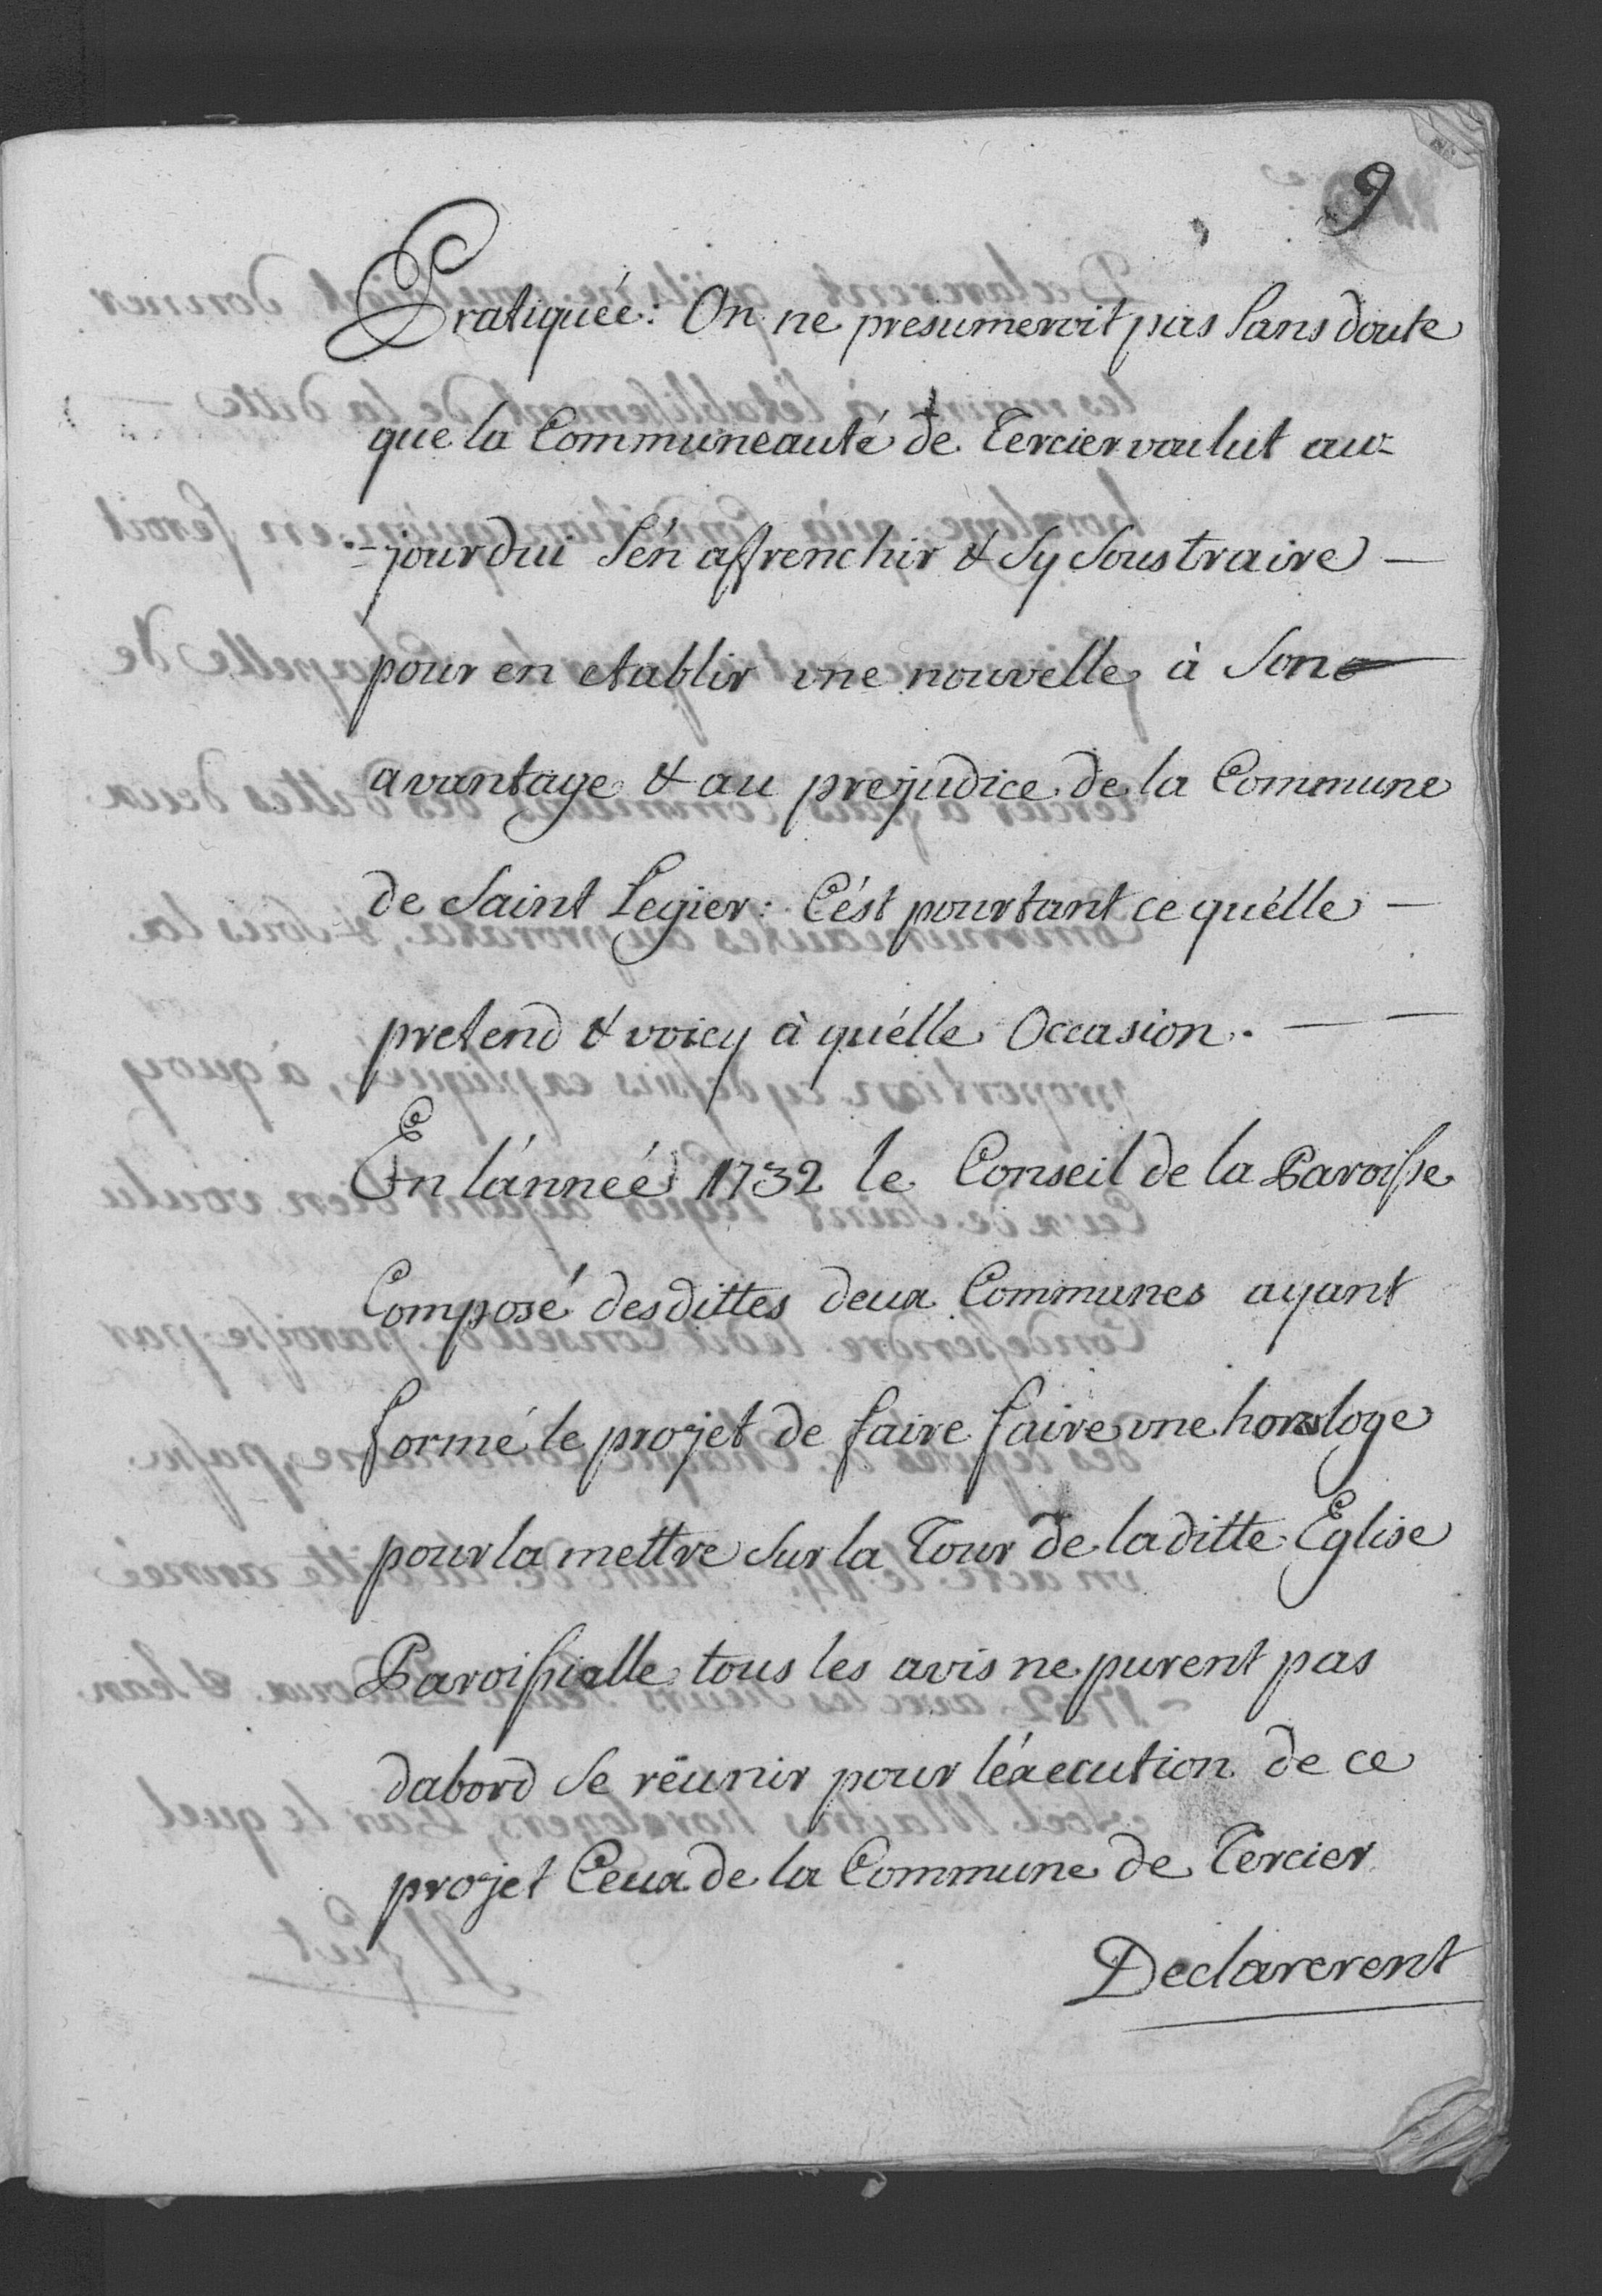 9
Pratiquéé: On ne presumeroit pas sans doute
que la Communeauté de Tercier voulut au=
=jourdui s'én affrenchir & sy soustraire —
pour en etablir une nouvelle à son
avantage & au prejudice de la Commune
de Saint Legier: C'ést pourtant ce qu'élle —
pretend & voicy à qu'élle Occasion. — —
En l'ánneé 1732 le Conseil de la Paroisse
Composé desdittes deux Communes ayant
formé le projet de faire faire une horologe
pour la mettre sur la Tour de laditte Eglise
Paroissialle tous les avis ne purent pas
dabord se réunir pour l'éxecution de ce
projet Ceux de la Commune de Tercier
Declarerent